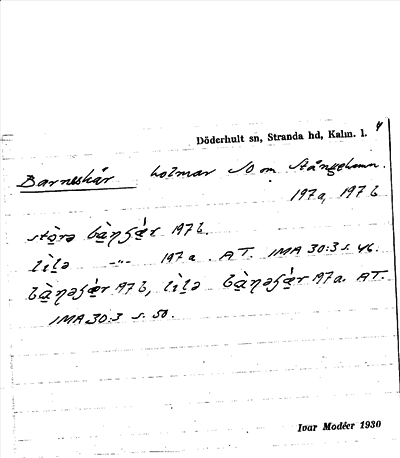 Döderhult sn, Stranda hd, Kalm. l. 4
Barneskär holmar SO om Stångehamn.
197a, 197b
stò̱rə bà̱ŋʃǽ̱r 197b.
lìlə –"– 197a. AT. IMA 30:3 s. 46.
bà̱ŋəʃǽ̱r 197b, lìlə bà̱ŋəʃǽ̱r 197a. AT.
IMA 30:3 s. 50.
Ivar Modéer 1930